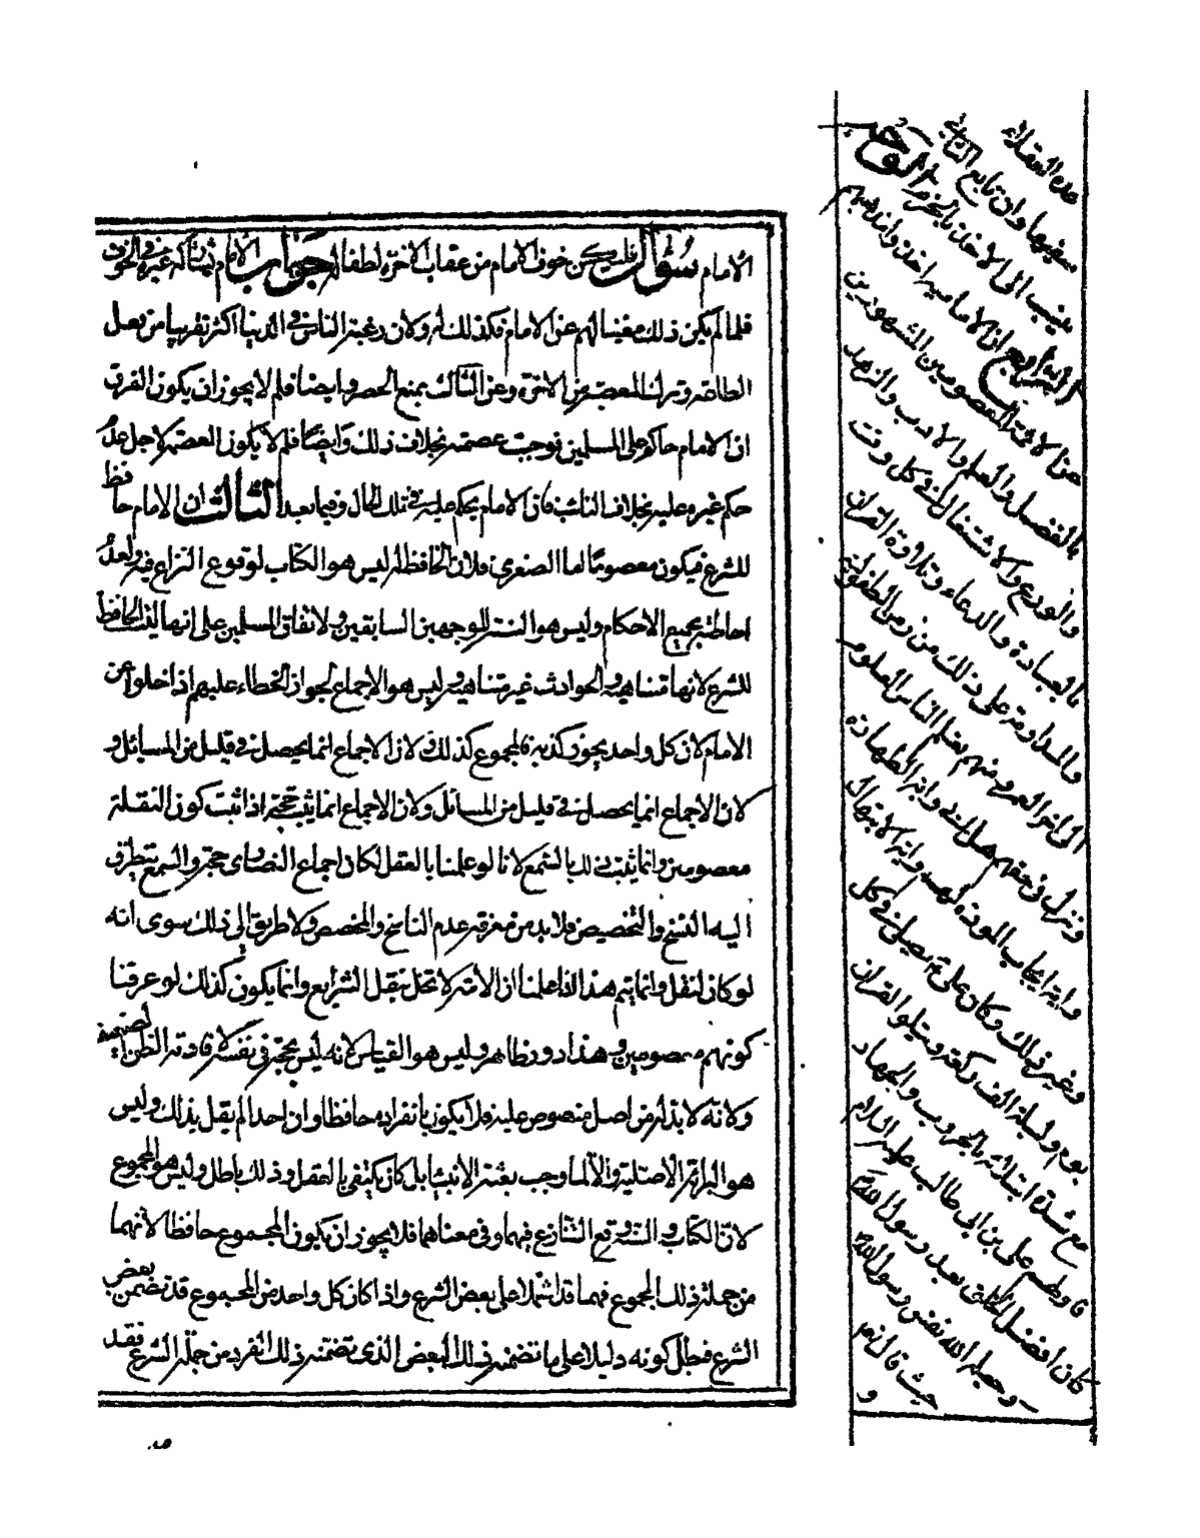 الامام سؤال خوف الامام من عقاب الاخرة لطفا له جواب الامام غيره في الخوف
فلما لم يكن ذلك مغنيا لهم عن الامام فكذلك له ولان رغبة الناس في الدنيا اكثر تقريبا من فعل
الطاعة وترك المعصية من الاخرة وعن الثالث بمنع الحصر وايضا فلم لا يجوز ان يكون الفرق
ان الامام حاكم على المسلمين فوجبت عصمته بخلاف ذلك وايضا فلم لا يكون العصمة لاجل عدم
حكم غيره عليه بخلاف النائب فان الامام يحكم عليه في تلك الحال وفيما بعد الثالث ان الامام حافظ
للشرع فيكون معصوما اما الصغرى فلان الحافظ له ليس هو الكتاب لوقوع النزاع فيه ولعدم
احاطته بجميع الاحكام وليس هو السنة للوجهين السابقين ولاتفاق المسلمين على انها ليست الحافظة
للشرع لانها متناهية والحوادث غير متناهية وليس هو الاجماع لجواز الخطاء عليهم اذا خلوا عن
الامام لان كل واحد يجوز كذبه فالمجموع كذلك ولان الاجماع انما يحصل في قليل من المسائل و
لان الاجماع انما يحصل في قليل من المسائل ولان الاجماع انما يثبت حجة اذا ثبت كون النقلة
معصومين وانما يثبت ذلك بالسمع لانا لو علمنا بالعقل لكان اجماع النصارى حجة والسمع يتطرق
اليه النسخ والتخصيص فلا بد من معرفة عدم الناسخ والمخصص ولا طريق الى ذلك سوى انه
لو كان لنقل وانما يتم هذا اذا علمنا ان الامة لا تخل بنقل الشرايع وانما يكون كذلك لو عرفنا
كونهم معصومين وهذا دور ظاهر وليس هو القياس لانه ليس بحجة في نفسه لافادته الظن
ولانه لا بد له من اصل منصوص عليه فلا يكون بانفراده حافظا وان احدا لم يقل بذلك وليس
هو البراءة الاصلية والا لما وجب بعثة الانبياء بل كان يكتفى بالعقل وذلك باطل وليس هو المجموع
لان الكتاب والسنة وقع التنازع فيهما وفي معناهما فلا يجوز ان يكون المجموع حافظا لانهما
من جملة ذلك المجموع فهما قد اشتملا على بعض الشرع واذا كان كل واحد من المجموع قد تضمن بعض
الشرع فبطل كونه دليلا على ما تضمنه ذلك البعض الذي تضمنه ذلك انفرد من جملة الشرع فقد
هذه العقلاء
سفيها وان تابع الثاني
ينسب الى الاخذ بالحزم الوجه
الرابع ان الامامية اخذوا مذهبهم
عن الائمة المعصومين المشهورين
بالفضل والعلم والادب والزهد
والورع والاشتغال في كل وقت
بالعبادة والدعاء وتلاوة القران
والمداومة على ذلك من زمن الطفولية
الى اخر العمر ومنهم يعلم الناس العلوم
ونزل في حقهم هل اتى واية الطهارة
واية ايجاب المودة لهم واية الابتهال
وغير ذلك وكان علي ع يصلي في كل
يوم وليلة الف ركعة ويتلو القران
مع شدة ابتلائه بالحروب والجهاد
فاولهم علي بن ابي طالب عليه السلام
كان افضل الخلق بعد رسول الله
وجعله الله نفس رسول الله
حيث قال تعالى
و